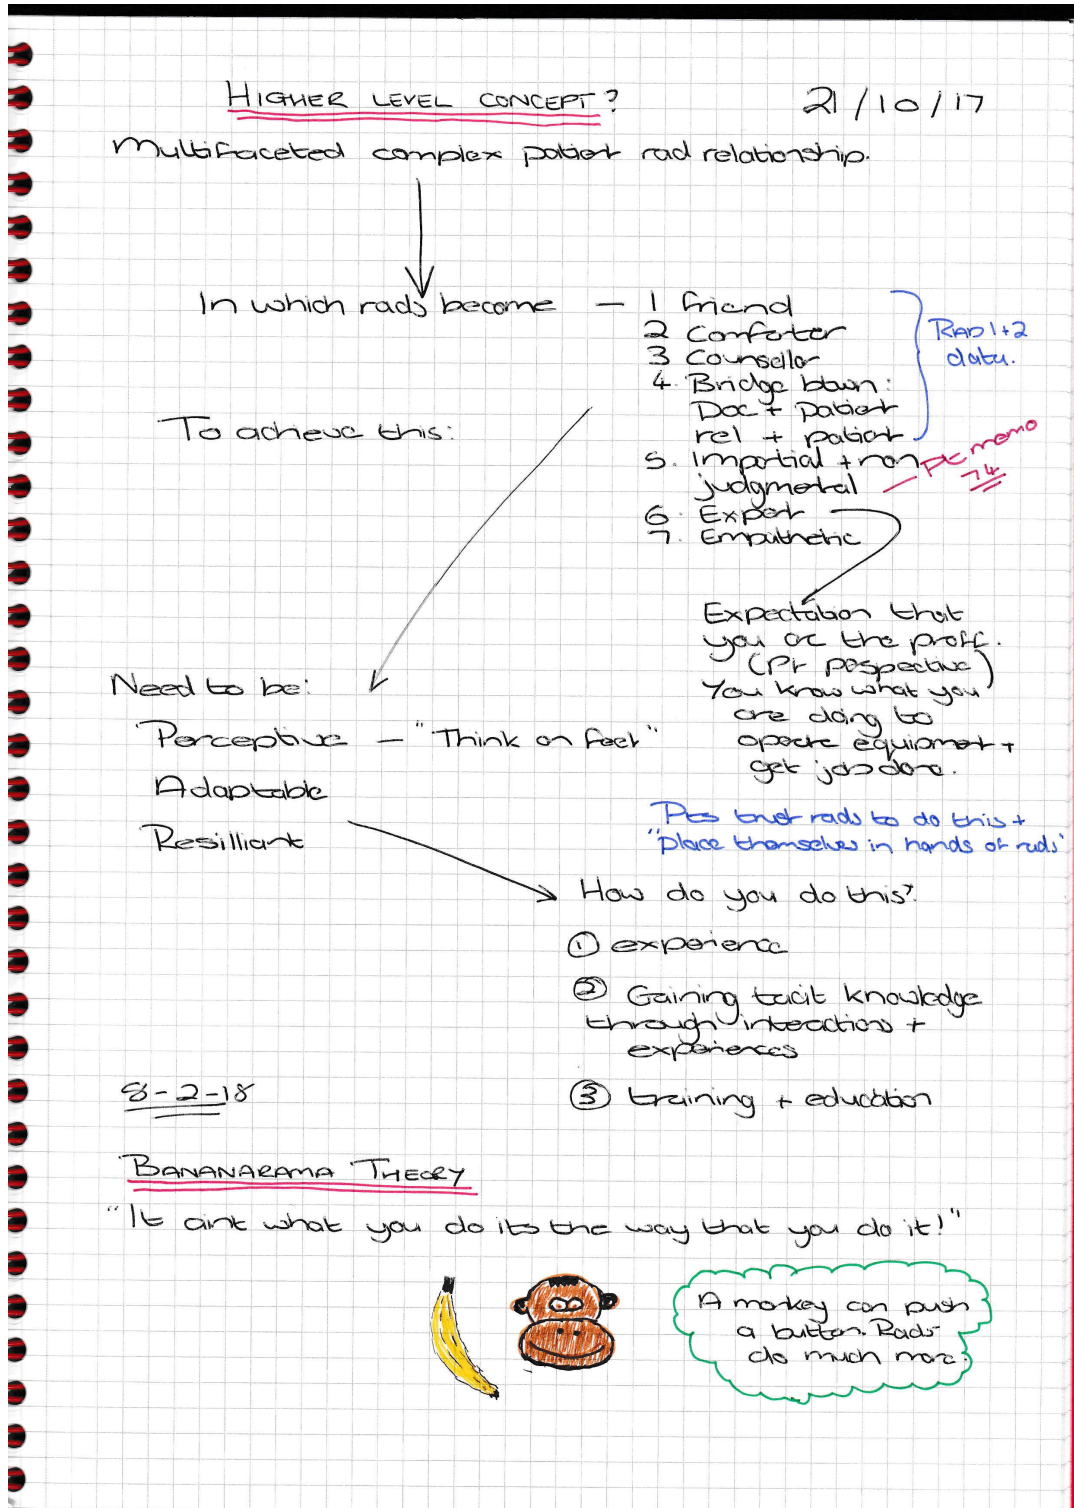 HIGHER LEVEL CONCEPT?
21/10/17
Multifaceted complex patient rad relationship.
In which rads become — 1 friend
2 Comforter
3 Counsellor
4. Bridge btwn:
Doc + patient
rel + patient
RAD 1+2
data.
To achieve this:
5. Impartial + non
judgmental
Pt memo
74
6. Expert
7. Empathetic
Expectation that
you are the proff.
(Pt perspective)
You know what you
are doing to
operate equipment +
get job done.
Need to be:
Perceptive — "Think on feet"
Adaptable
Resilliant
Pts trust rads to do this +
"place themselves in hands of rads"
How do you do this?
① experience
② Gaining tacit knowledge
through interactions +
experiences
③ training + education
8-2-18
BANANARAMA THEORY
"It aint what you do its the way that you do it!"
A monkey can push
a button. Rads
do much more.